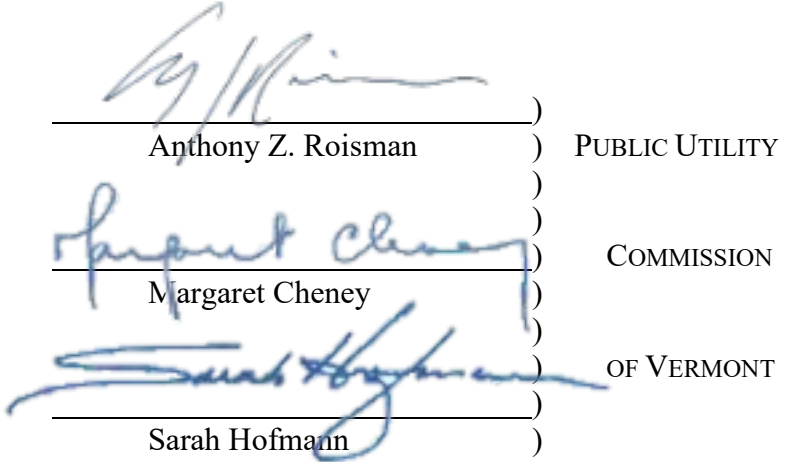 )
Anthony Z. Roisman ) PUBLIC UTILITY
)
)
Margaret Cheney ) COMMISSION
Margaret Cheney )
)
Sarah Hofmann ) OF VERMONT
)
Sarah Hofmann )